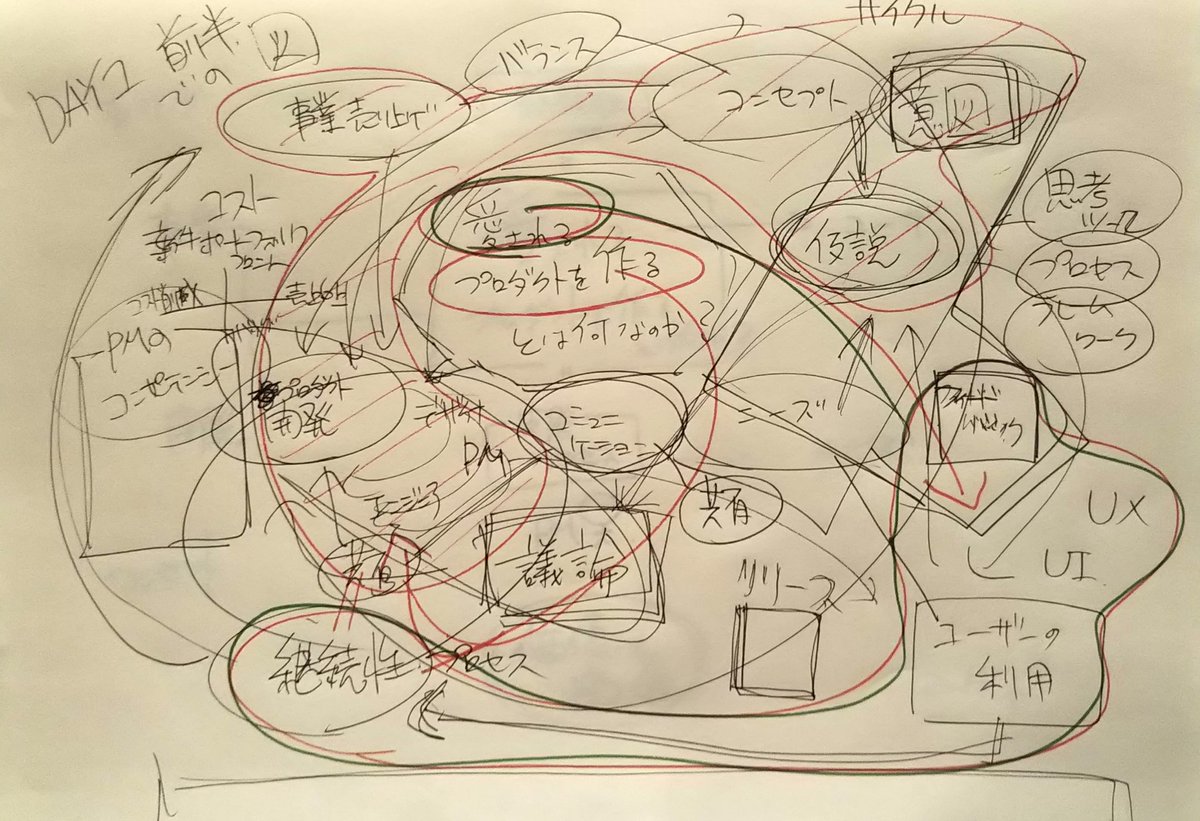 DAY1 前半
での 図
バランス
サイクル
事業売り上げ
コンセプト
意図
コスト
愛される
プロダクトを作る
とは何なのか?
仮説
思考
ツール
プロセス
フレーム
ワーク
コスト削減
売上向上
PMO
コンピテンシー
プロダクト
開発
デザイナ
PM
エンジニア
コミュニ
ケーション
ニーズ
フィード
バック
共有
議論
リリース
UX
UI
継続性
プロセス
ユーザーの
利用